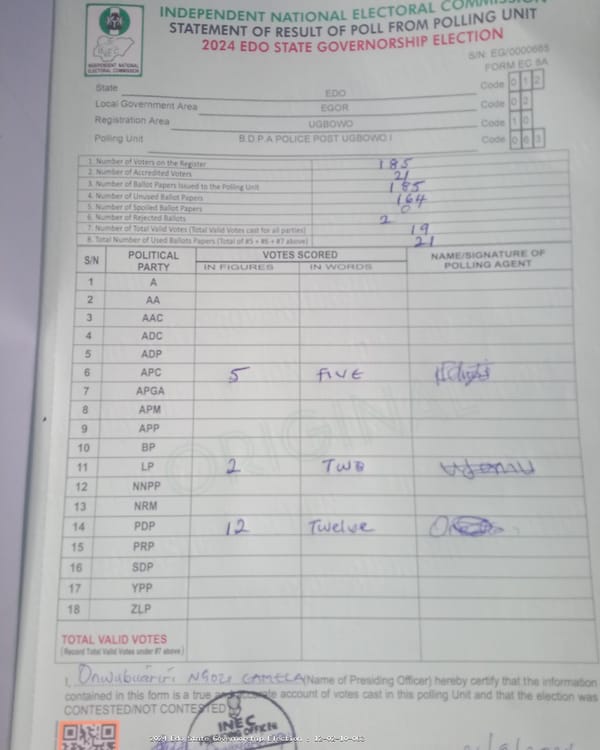 INDEPENDENT NATIONAL ELECTORAL COMMISSION
STATEMENT OF RESULT OF POLL FROM POLLING UNIT
2024 EDO STATE GOVERNORSHIP ELECTION
INEC
INDEPENDENT NATIONAL
ELECTORAL COMMISSION
S/N: EG/0000665
FORM EC 8A
State EDO Code 0 1 2
Local Government Area EGOR Code 0 2
Registration Area UGBOWO Code 1 0
Polling Unit B.D.P.A POLICE POST UGBOWO I Code 0 6 3
1. Number of Voters on the Register 185
2. Number of Accredited Voters 21
3. Number of Ballot Papers Issued to the Polling Unit 185
4. Number of Unused Ballot Papers 164
5. Number of Spoiled Ballot Papers 0
6. Number of Rejected Ballots 2
7. Number of Total Valid Votes (Total Valid Votes cast for all parties) 19
8. Total Number of Used Ballots Papers (Total of #5 + #6 + #7 above) 21
S/N POLITICAL PARTY VOTES SCORED NAME/SIGNATURE OF POLLING AGENT
IN FIGURES IN WORDS
1 A
2 AA
3 AAC
4 ADC
5 ADP
6 APC 5 FIVE
7 APGA
8 APM
9 APP
10 BP
11 LP 2 TWO
12 NNPP
13 NRM
14 PDP 12 Twelve
15 PRP
16 SDP
17 YPP
18 ZLP
ORIGINAL
TOTAL VALID VOTES
(Record Total Valid Votes under #7 above)
I, Onwubuariri NGOZI GAMELA (Name of Presiding Officer) hereby certify that the information
contained in this form is a true and accurate account of votes cast in this polling Unit and that the election was
CONTESTED/NOT CONTESTED
INEC
2024 Edo State Governorship Election : 12-02-10-063